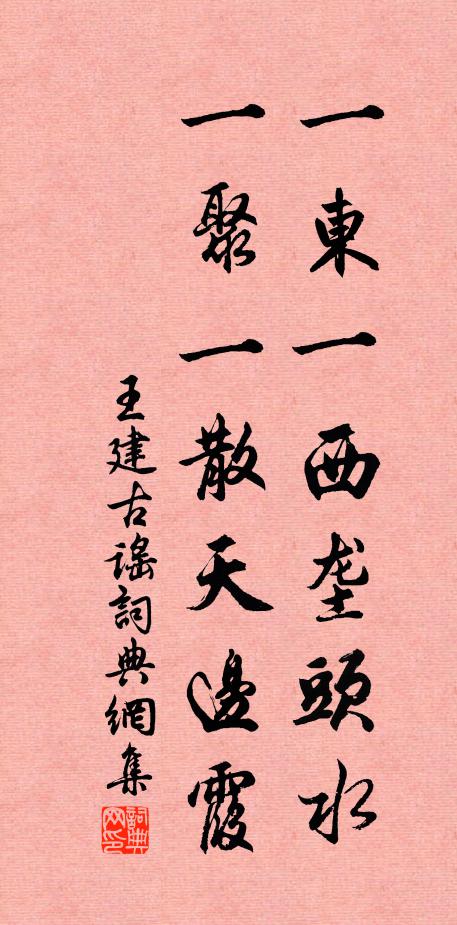 一東一西垄頭水
一聚一散天邊霞
王建古謠詞典網集
詞典网印